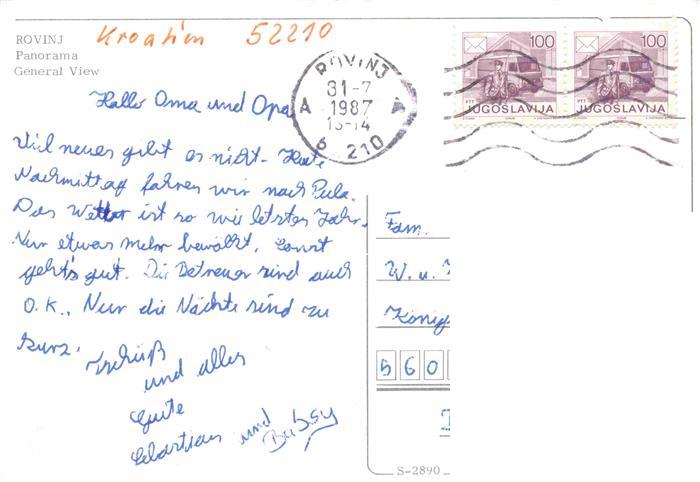 ROVINJ
Panorama
General View
Kroatien 52210
ROVINJ
31-7
1987
13-14
A A
6 210
100 100
PTT JUGOSLAVIJA PTT JUGOSLAVIJA
Hallo Oma und Opa
Viel neues gibt es nicht. Heute
Nachmittag fahren wir nach Pula.
Das Wetter ist so wie letztes Jahr.
Nur etwas mehr bewölkt. Sonst
geht's gut. Die Betreuer sind auch
O.K.. Nur die Nächte sind zu
kurz. Tschüß
und alles
Gute
Sebastian und Bubsy
Fam.
W. u.
König
560
S-2890